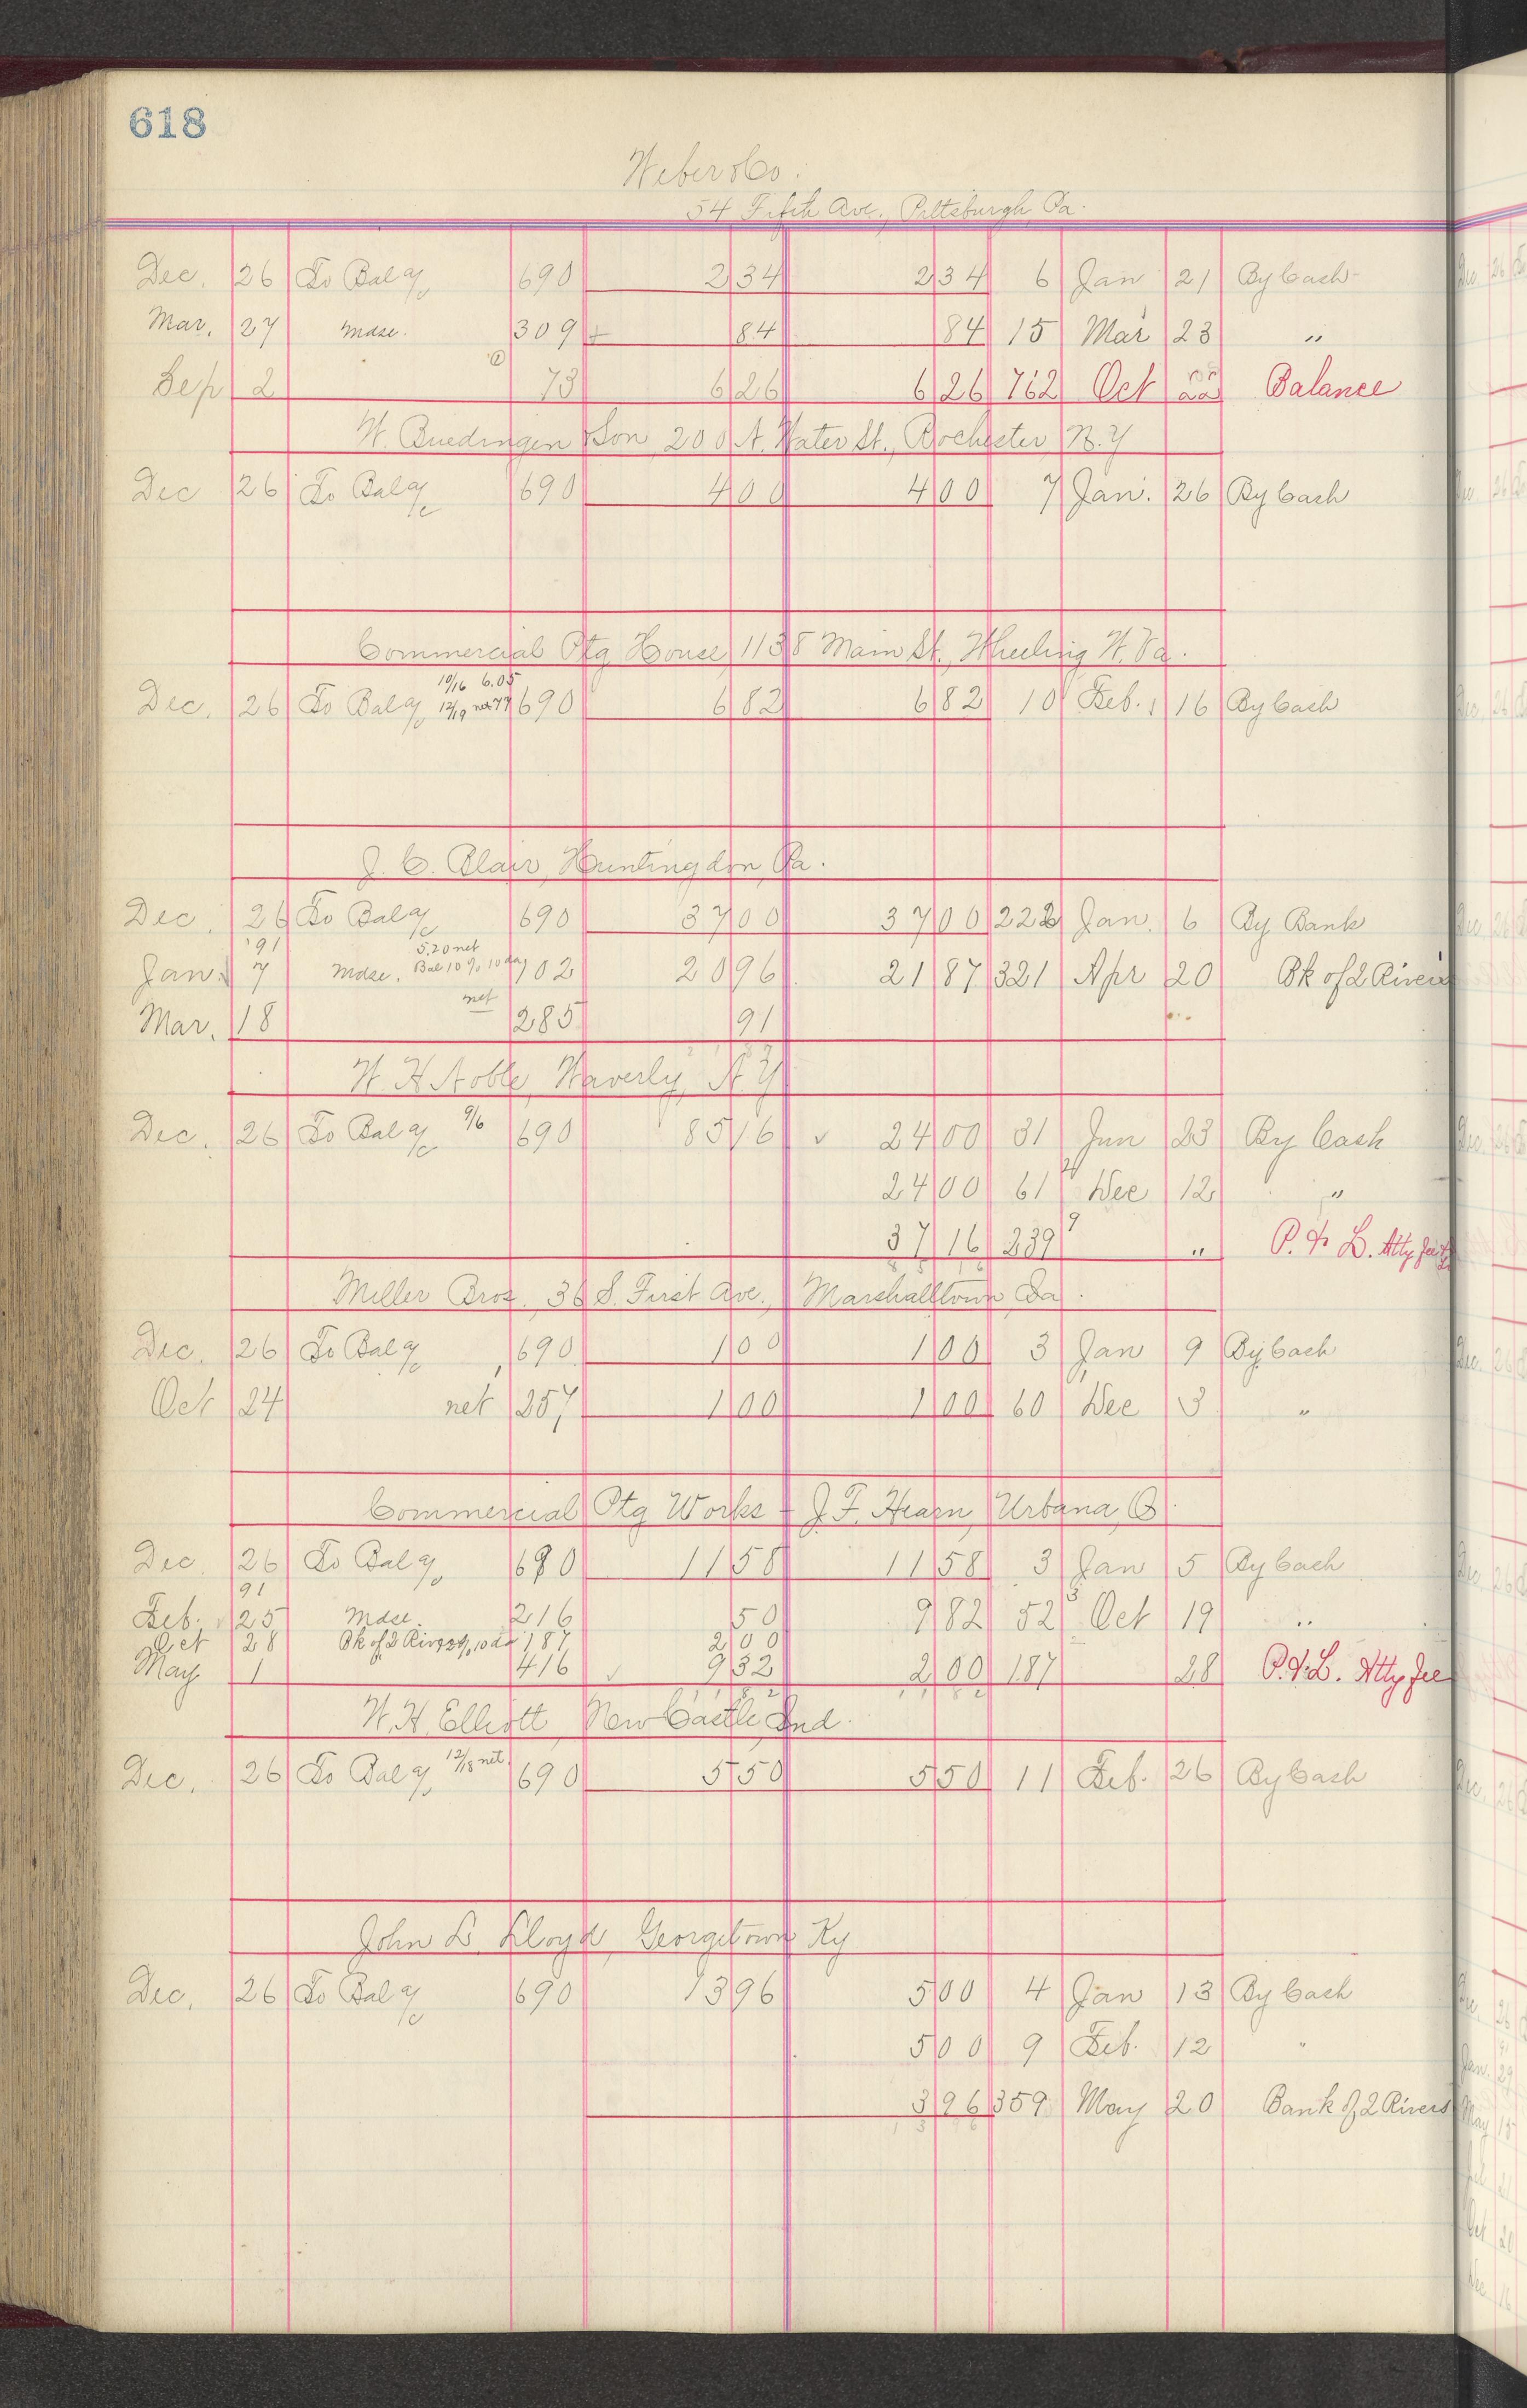 618
Weber & Co.
54 Fifth Ave., Pittsburgh, Pa.
Dec. 26 To Bal a/c 690 2 34 2 34 6 Jan 21 By Cash
Mar. 27 Mdse. 309 84 84 15 Mar 23 "
Sep 2 73 6 26 6 26 762 Oct 22 Balance
W. Buedingen & Son, 200 N. Water St., Rochester, N.Y
Dec 26 To Bal a/c 690 4 00 4 00 7 Jan. 26 By Cash
Commercial Ptg House, 1138 Main St., Wheeling W. Va.
10/16 6.05
Dec. 26 To Bal a/c 12/19 net 77 690 6 82 6 82 10 Feb. 16 By Cash
J. C. Blair, Huntingdon, Pa.
Dec. 26 To Bal a/c 690 37 00 37 00 222 Jan. 6 By Bank
'91 5.20 net
Jan. 7 Mdse. Bal 10% 10 da 102 20 96 21 87 321 Apr 20 Bk of 2 Rivers
Mar. 18 net 285 91
W. H. Noble, Waverly, N.Y
Dec. 26 To Bal a/c 9/6 690 85 16 ✓ 24 00 31 Jun 23 By Cash
24 00 61 Dec 12 "
37 16 239 9 " P. & L. Atty fee
Miller Bros., 36 S. First Ave., Marshalltown, Ia.
Dec. 26 To Bal a/c 690 1 00 1 00 3 Jan 9 By Cash
Oct 24 net 257 1 00 1 00 60 Dec 3 "
Commercial Ptg Works - J. F. Hearn, Urbana, O.
Dec 26 To Bal a/c 690 11 58 11 58 3 Jan 5 By Cash
91
Feb. 25 Mdse. 216 50 9 82 52 Oct 19 "
Oct 28 Bk of 2 Riv 2% 10 da 187 2 00
May 1 416 ✓ 9 32 2 00 187 28 P. & L. Atty fee
W. H. Elliott, New Castle, Ind.
Dec. 26 To Bal a/c 12/18 net 690 5 50 5 50 11 Feb. 26 By Cash
John L. Lloyd, Georgetown Ky
Dec. 26 To Bal a/c 690 13 96 5 00 4 Jan 13 By Cash
5 00 9 Feb. 12 "
3 96 359 May 20 Bank of 2 Rivers